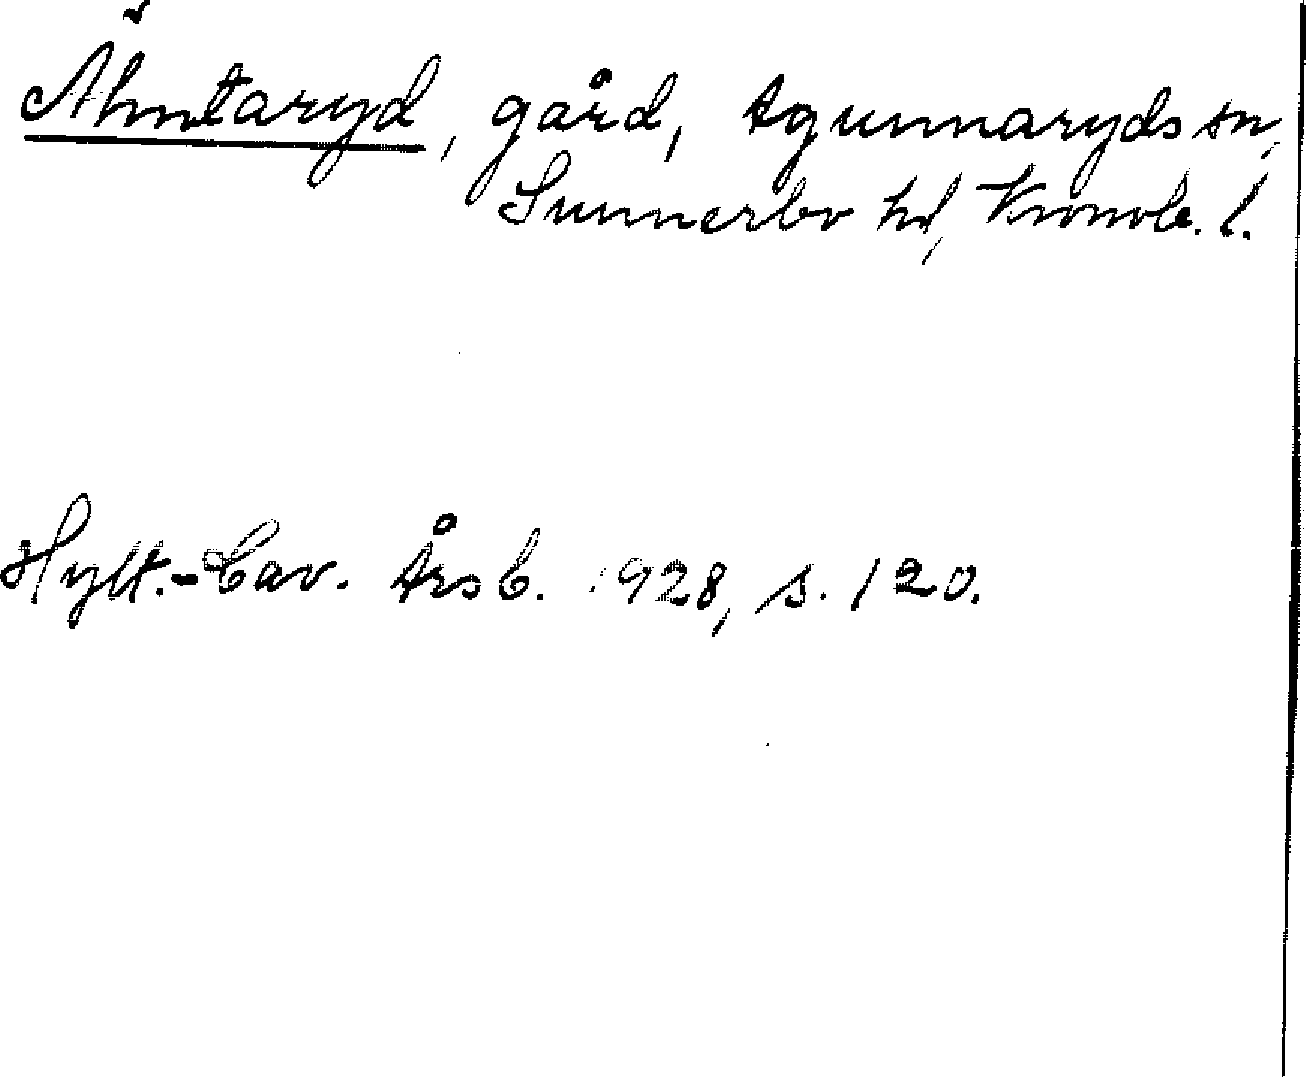 Älmtaryd, gård, Agunnaryds sn,
Sunnerbo hd, Kronob. l.
Hylt.-Cav. Årsb. 1928, s. 120.